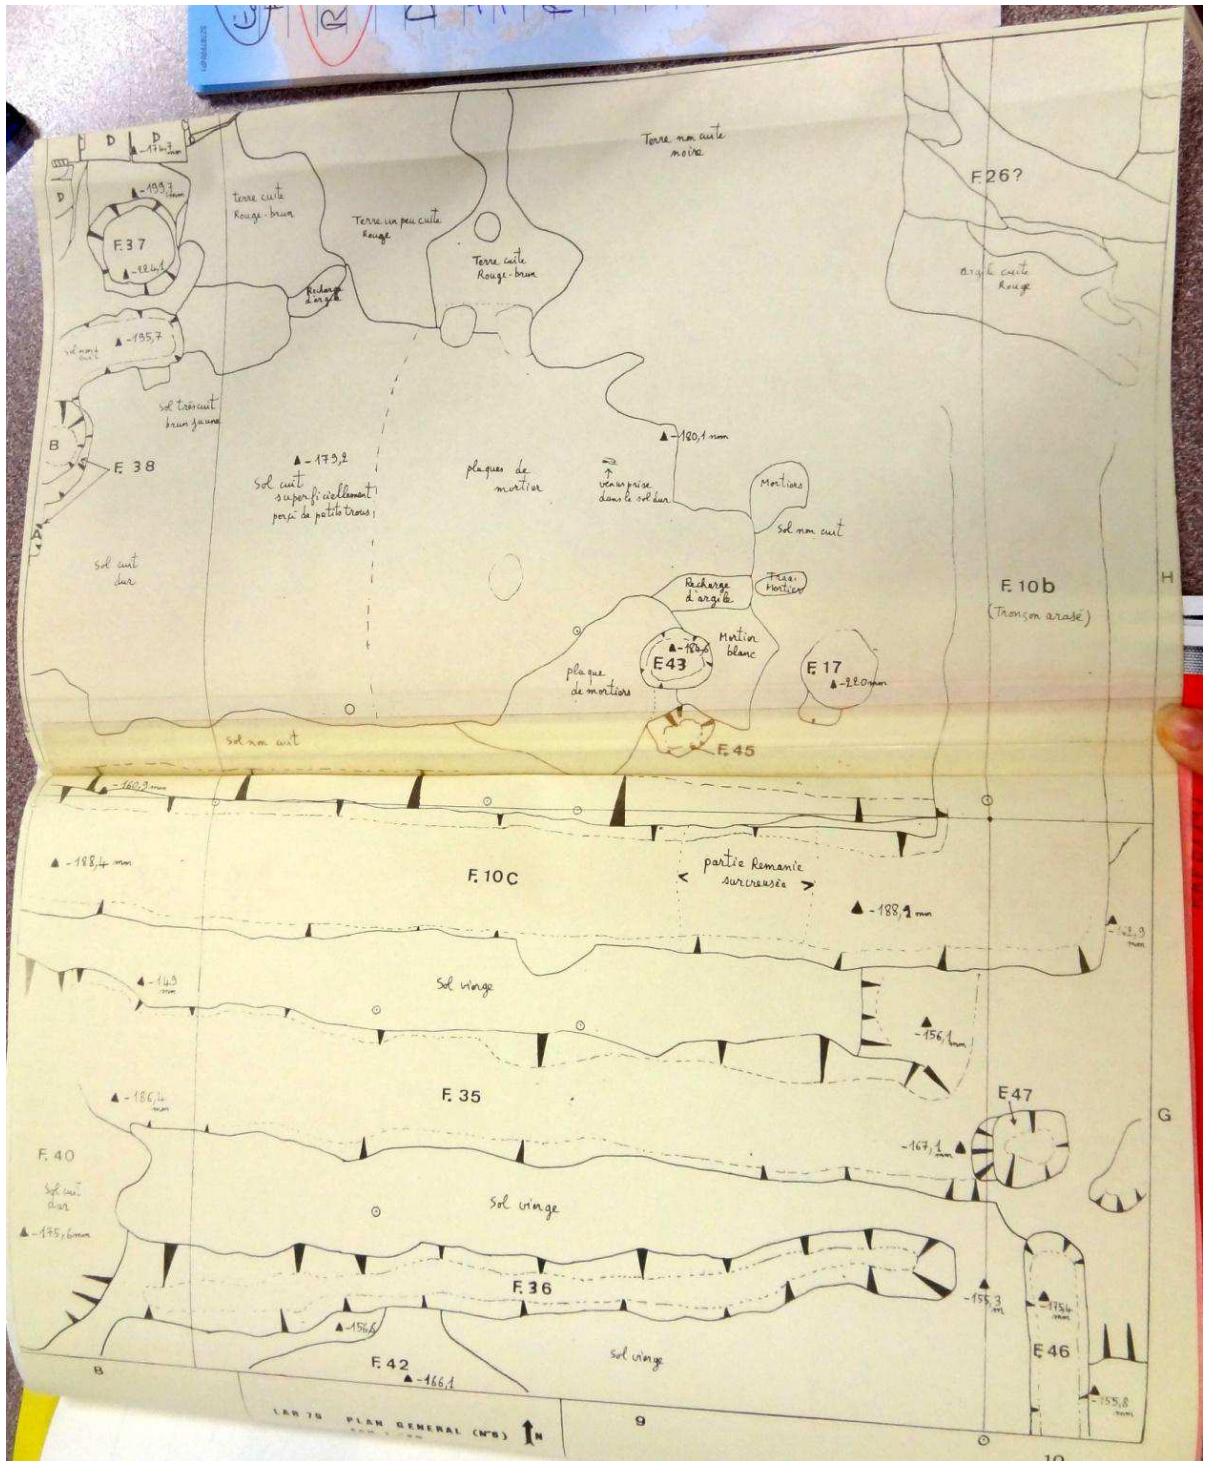 D
D
-174,7
mm
D
-199,7
mm
F.37
-224,1
terre cuite
Rouge-brun
Terre un peu cuite
Rouge
Terre cuite
Rouge-brun
Terre non cuite
noire
F.26?
argile cuite
Rouge
Recharge
d'argile
-195,7
sol non
cuit
sol très cuit
brun jaune
B
F.38
-179,2
Sol cuit
superficiellement
percé de petits trous
plaques de
mortier
-180,1 mm
dans le sol dur
Mortiers
sol non cuit
sol cuit
dur
Recharge
d'argile
Mortier
F.10b
(Tronçon arasé)
H
F.43
Mortier
blanc
plaque
de mortiers
F.17
-220mm
F.45
sol non cuit
-160,9 mm
-188,4 mm
F.10C
partie Remanie
surcreusée
-188,9 mm
mm
Sol vierge
-149
mm
-156,1
mm
F.35
-186,4
mm
F.47
-167,1
mm
G
F.40
Sol cuit
dur
-175,6mm
Sol vierge
F.36
-155,3
m
-175,4
mm
F.46
F.42
-166,1
Sol vierge
-155,8
mm
8
9
10
PLAN GENERAL (N°6)
N